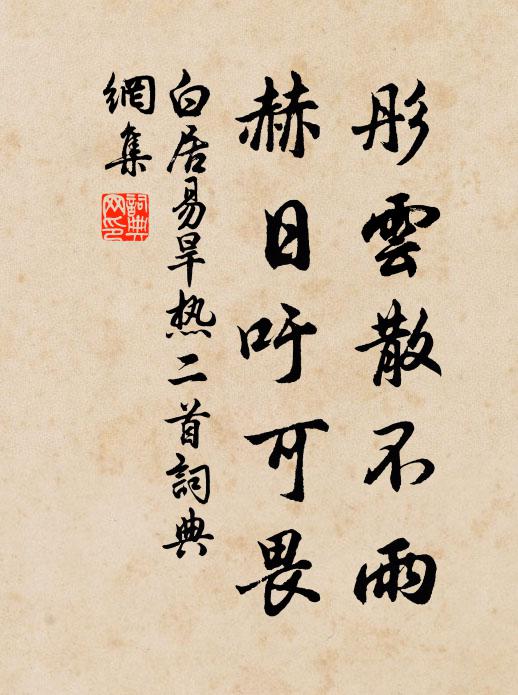 彤雲散不雨
赫日吁可畏
白居易旱热二首詞典
網集
詞典
网印